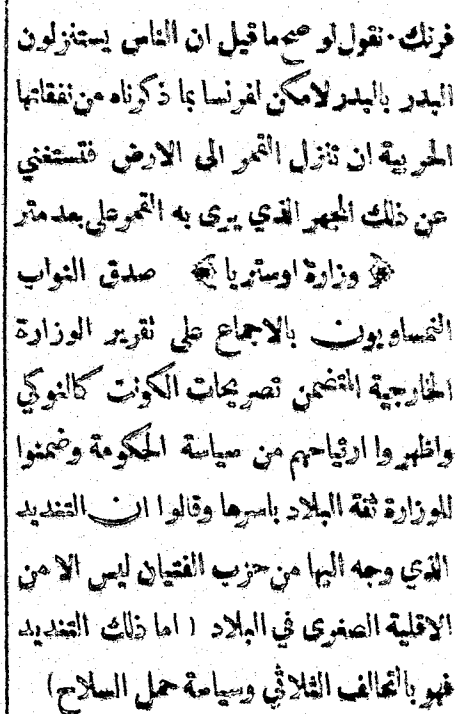 فرنك . نقول لو صح ما قيل ان الناس يستنزلون
البدر بالبدر لامكن لفرنسا بما ذكرناه من نفقاتها
الحربية ان تنزل القمر الى الارض فتستغني
عن ذلك المجهر الذي يرى به القمر على بعد متر
﴿ وزارة اوستريا ﴾ صدق النواب
النمساويون بالاجماع على تقرير الوزارة
الخارجية المتضمن تصريحات الكونت كالنوكي
واظهروا ارتياحهم من سياسة الحكومة وضمنوا
للوزارة ثقة البلاد باسرها وقالوا ان التنديد
الذي وجه اليها من حزب الفتيان ليس الا من
الاقلية الصغرى في البلاد ( اما ذلك التنديد
فهو بالتحالف الثلاثي وسياسة حمل السلاح )